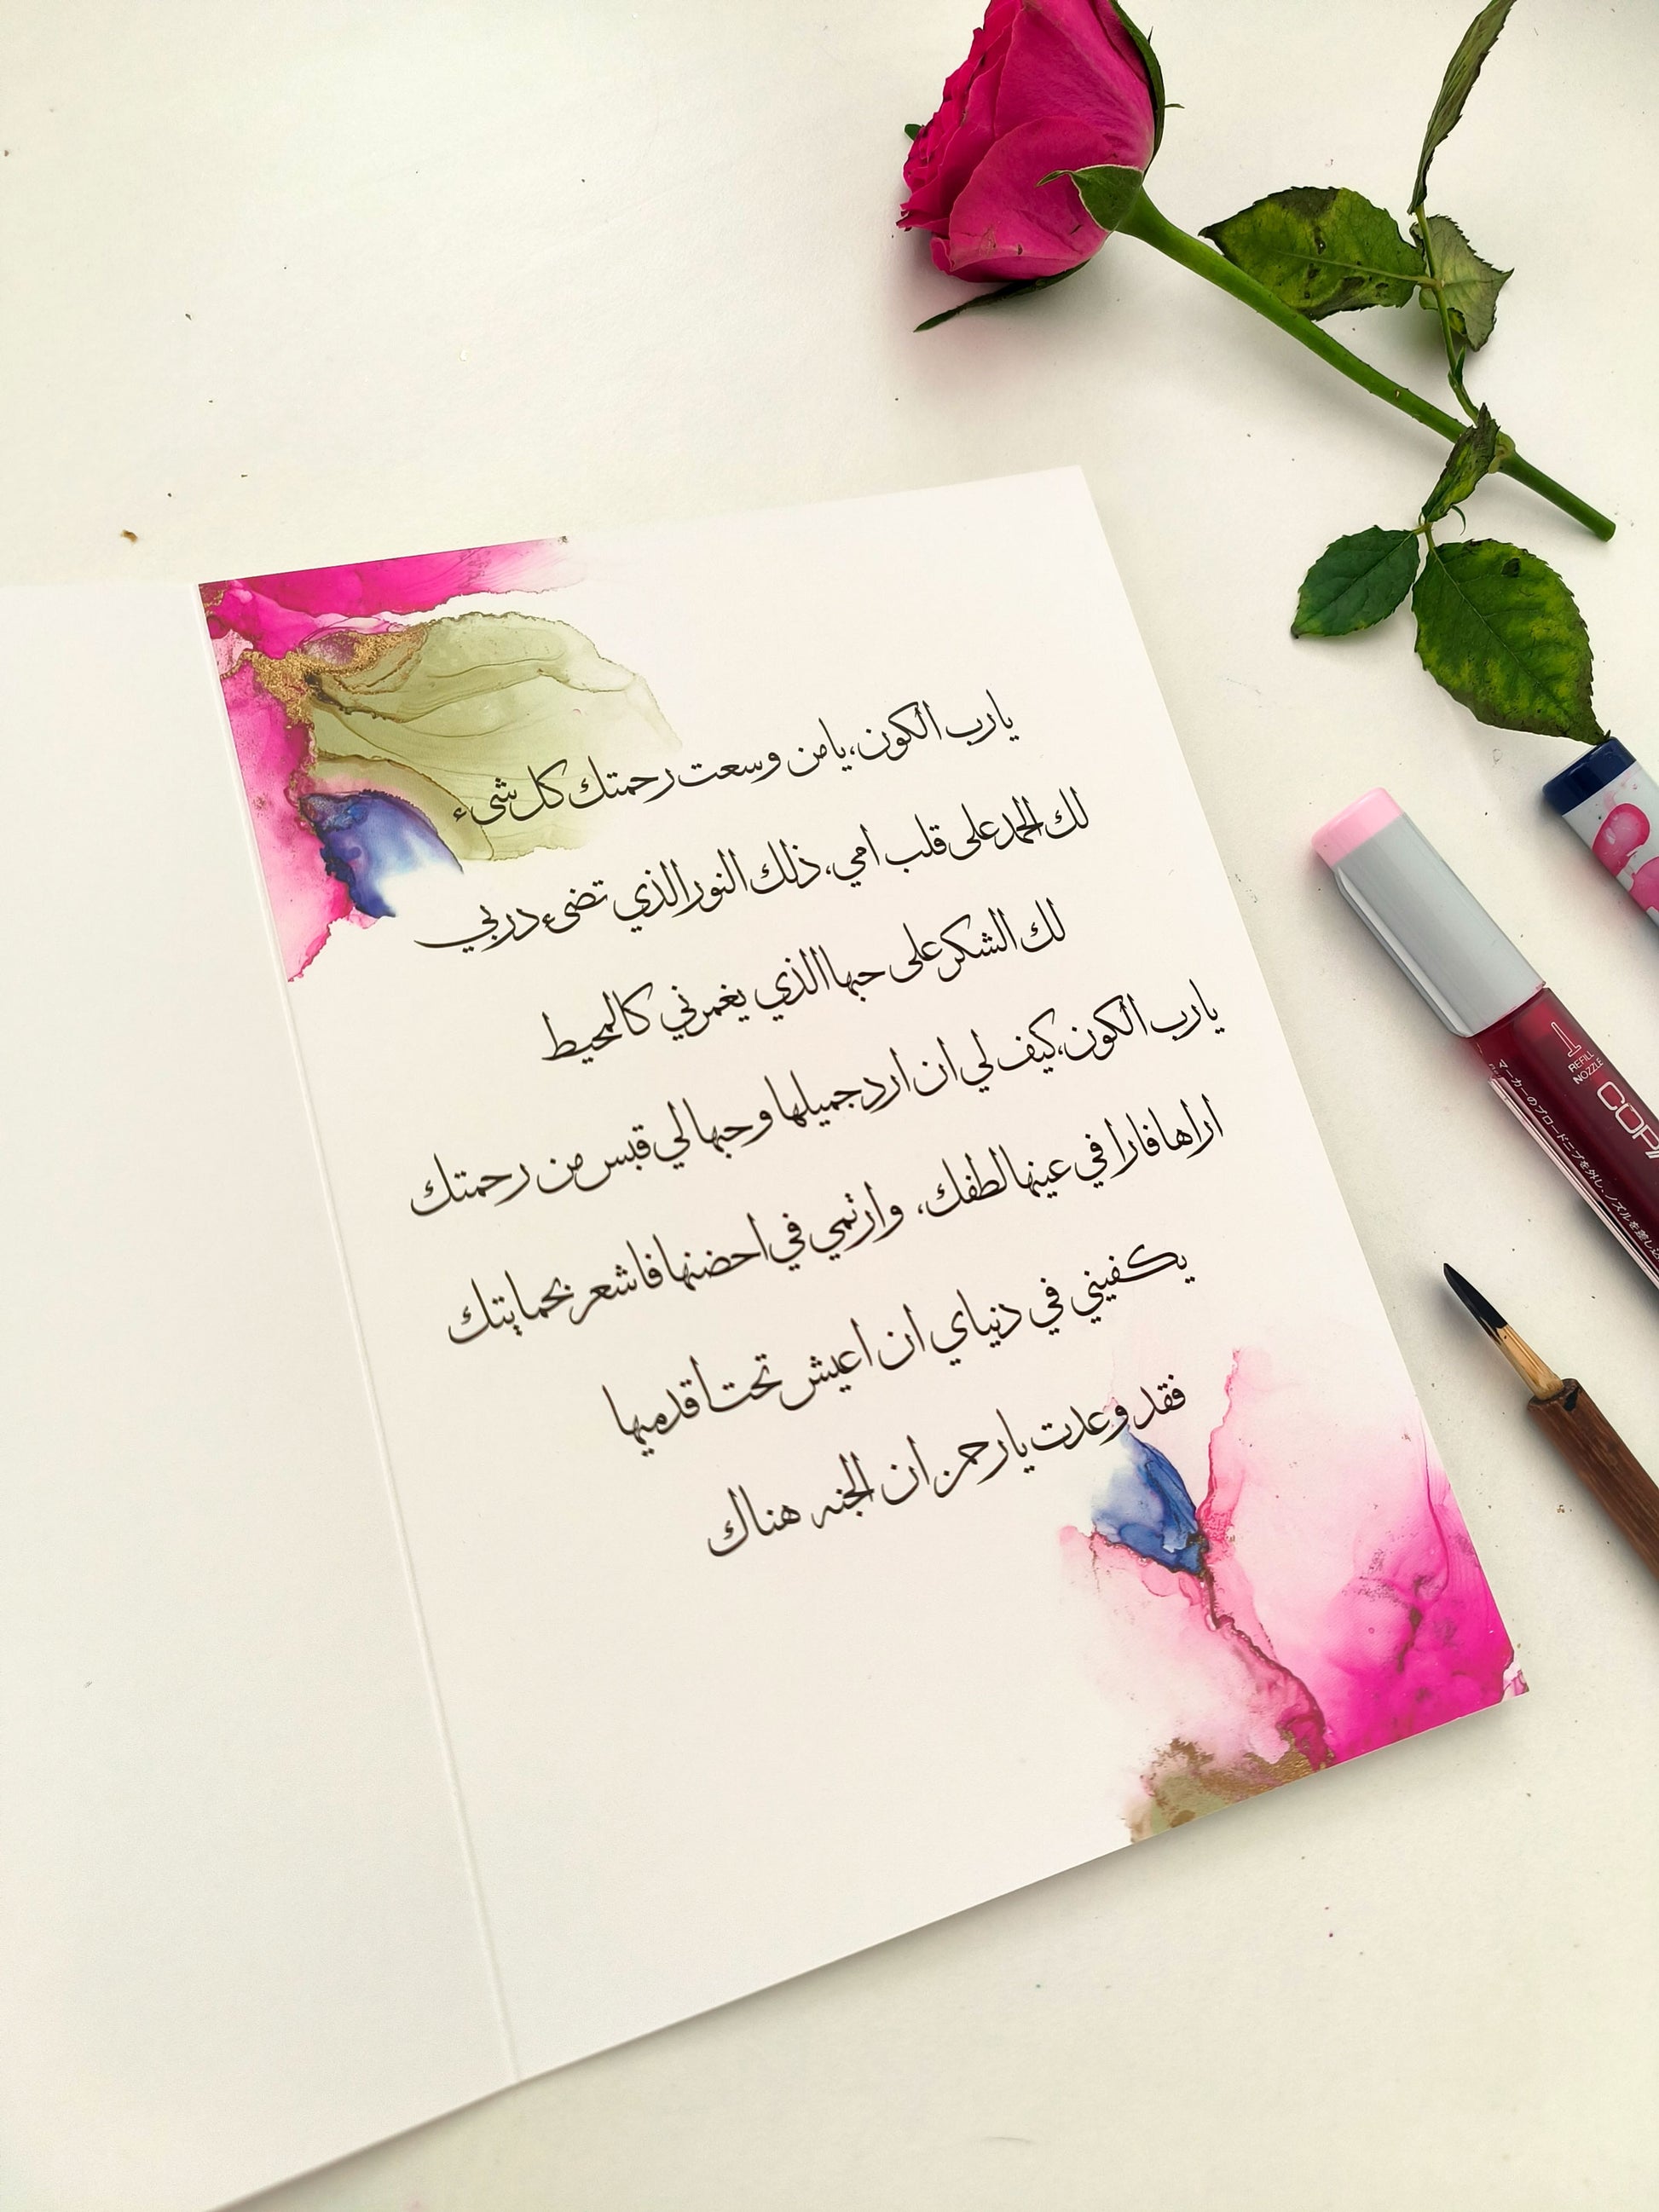 يارب الكون،يامن وسعت رحمتك كل شيء
لك الحمد على قلب امي، ذلك النور الذي تضيء دربي
لك الشكر على حبها الذي يغمرني كالمحيط
يارب الكون،كيف لي ان ارد جميلها وحبها لي قبس من رحمتك
اراها فارا في عينها لطفك، وارتمي في احضنها فاشعر بحمايتك
يكفيني في دنياي ان اعيش تحت اقدميها
فقد وعدت يارحمن ان الجنه هناك
1
REFILL
NOZZLE
COPI